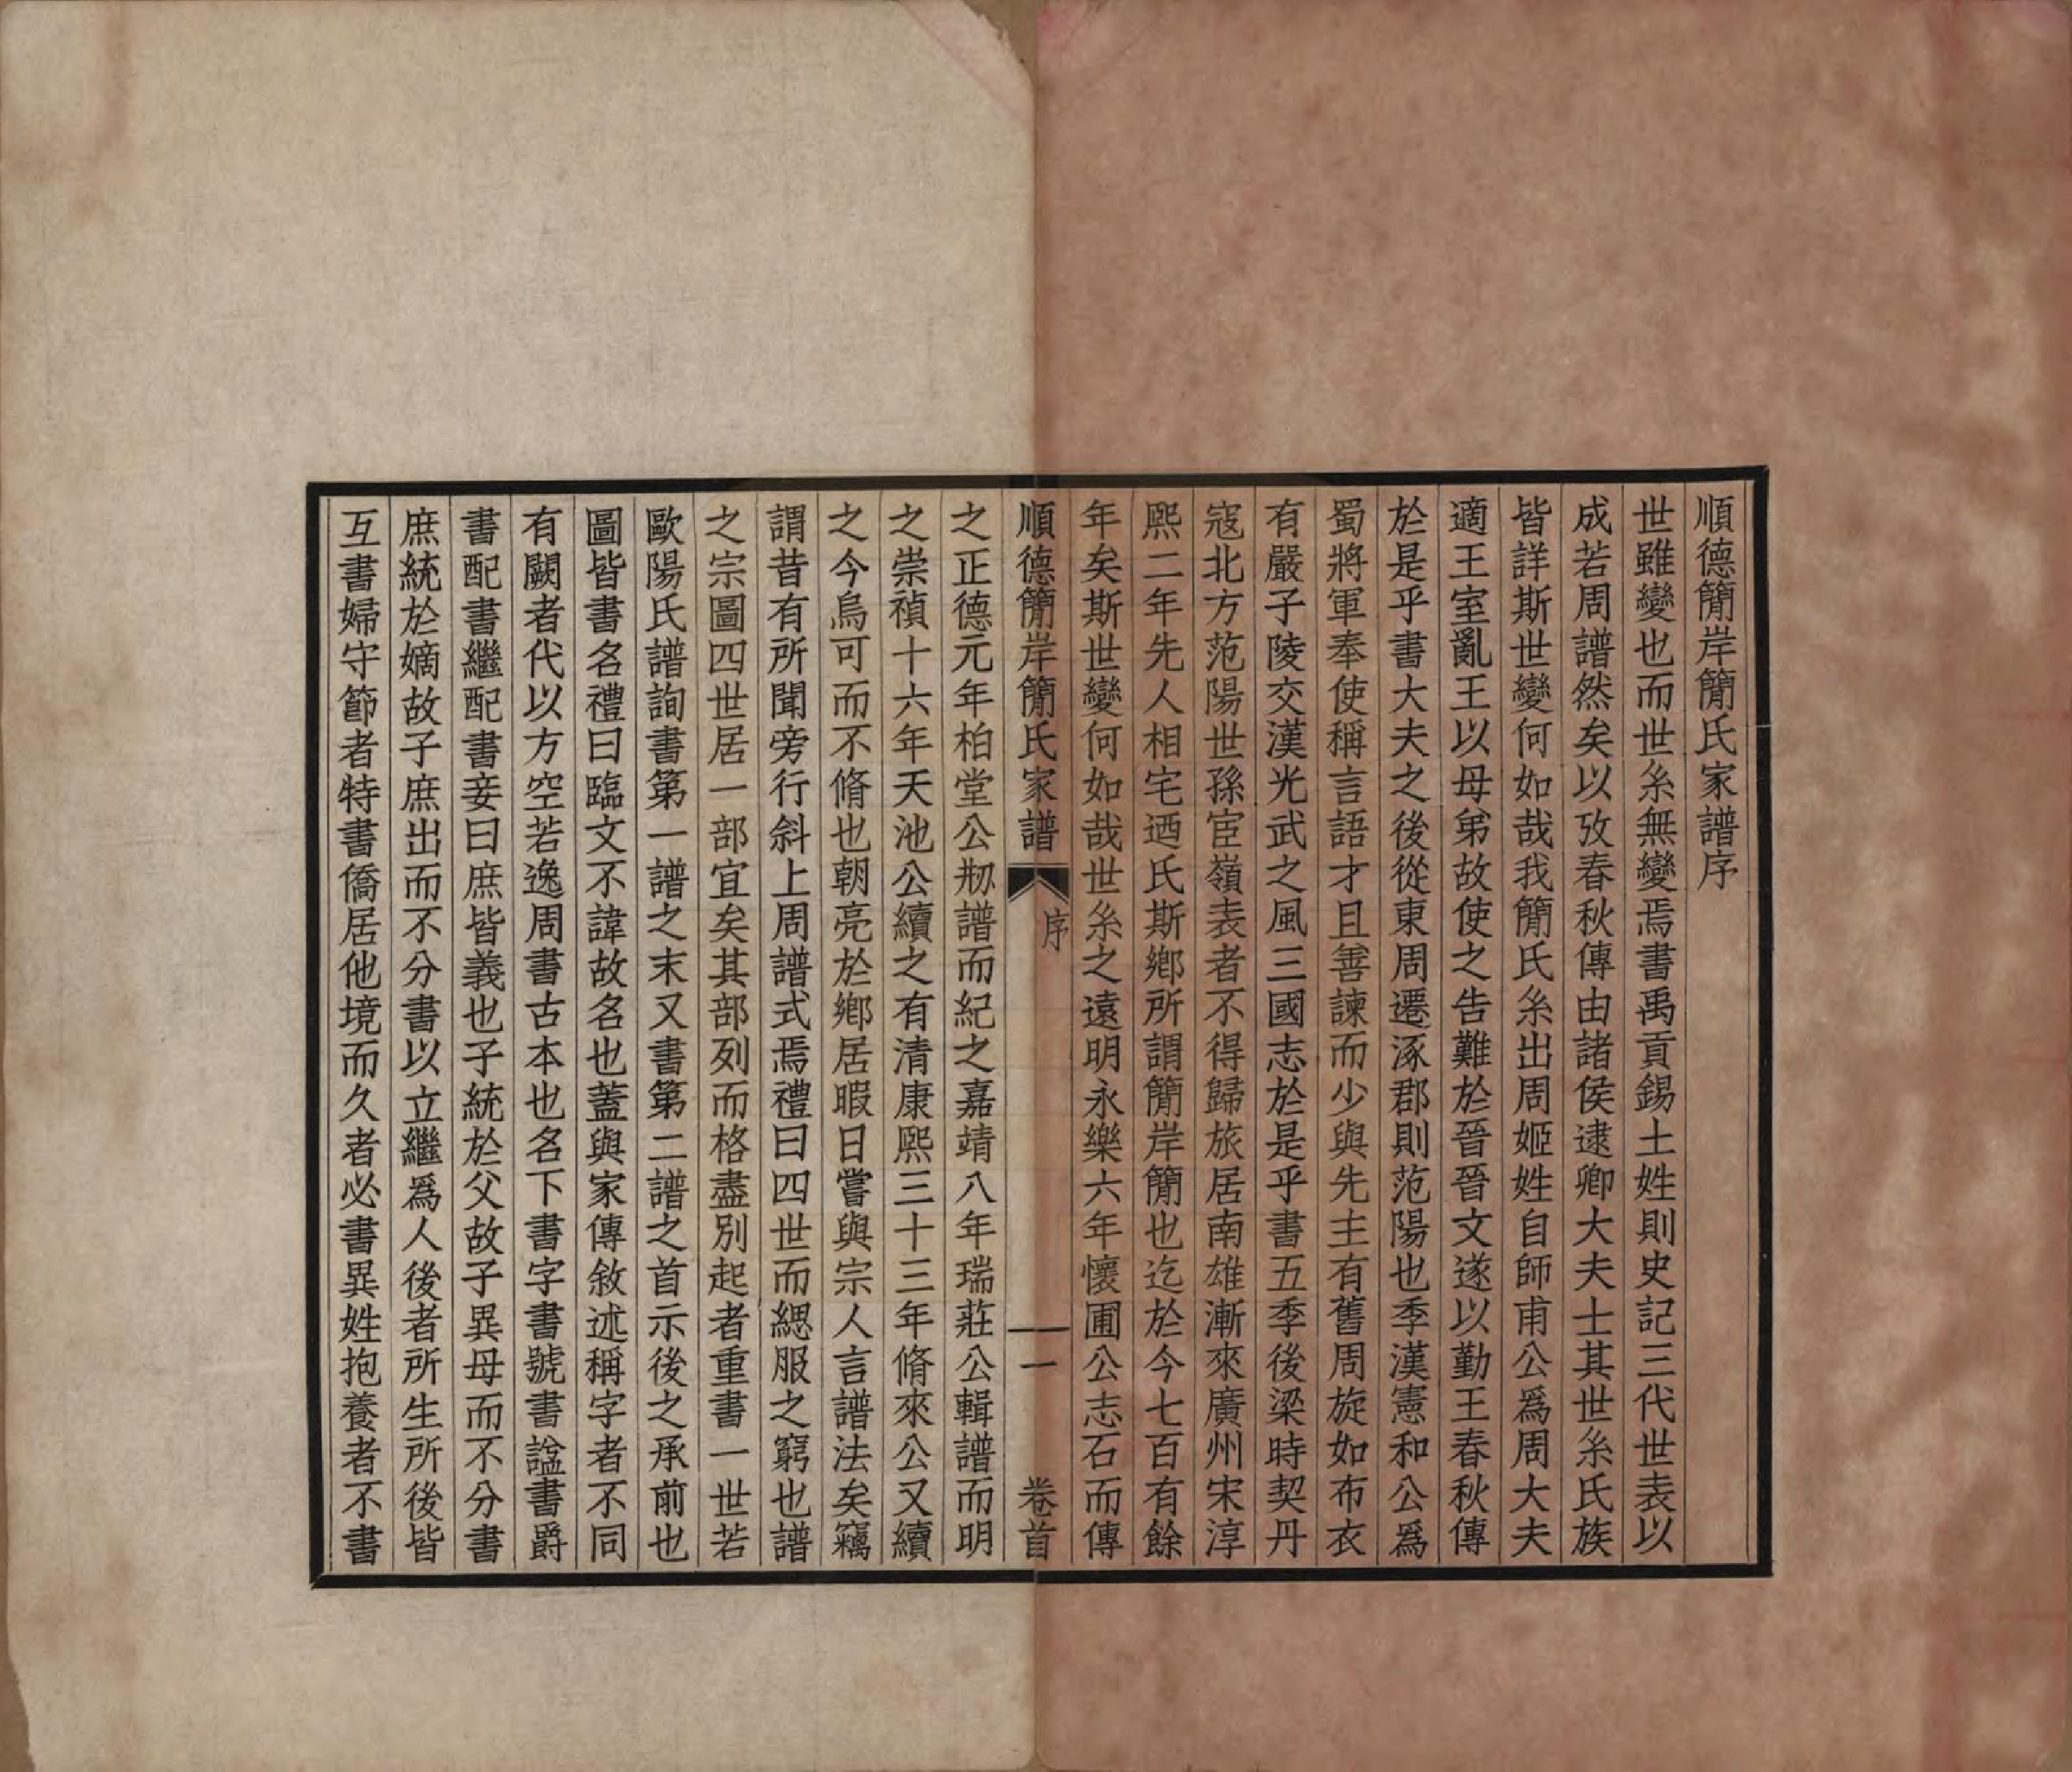 順德簡岸簡氏家譜序
世雖變也而世糸無變焉書禹貢錫土姓則史記三代世表以
成若周譜然矣以攷春秋傳由諸侯逮卿大夫士其世糸氏族
皆詳斯世變何如哉我簡氏糸出周姬姓自師甫公爲周大夫
適王室亂王以母弟故使之告難於晉晉文遂以勤王春秋傳
於是乎書大夫之後從東周遷涿郡則范陽也季漢憲和公爲
蜀將軍奉使稱言語才且善諫而少與先主有舊周旋如布衣
有嚴子陵交漢光武之風三國志於是乎書五季後梁時契丹
寇北方范陽世孫宦嶺表者不得歸旅居南雄漸來廣州宋淳
熙二年先人相宅迺氏斯鄉所謂簡岸簡也迄於今七百有餘
年矣斯世變何如哉世糸之遠明永樂六年懷圃公志石而傳
順德簡岸簡氏家譜 序 一 卷首
之正德元年柏堂公剏譜而紀之嘉靖八年瑞莊公輯譜而明
之崇禎十六年天池公續之有清康熙三十三年脩來公又續
之今烏可而不脩也朝亮於鄉居暇日嘗與宗人言譜法矣竊
謂昔有所聞旁行斜上周譜式焉禮曰四世而緦服之窮也譜
之宗圖四世居一部宜矣其部列而格盡別起者重書一世若
歐陽氏譜詢書第一譜之末又書第二譜之首示後之承前也
圖皆書名禮曰臨文不諱故名也蓋與家傳敘述稱字者不同
有闕者代以方空若逸周書古本也名下書字書號書諡書爵
書配書繼配書妾曰庶皆義也子統於父故子異母而不分書
庶統於嫡故子庶出而不分書以立繼爲人後者所生所後皆
互書婦守節者特書僑居他境而久者必書異姓抱養者不書